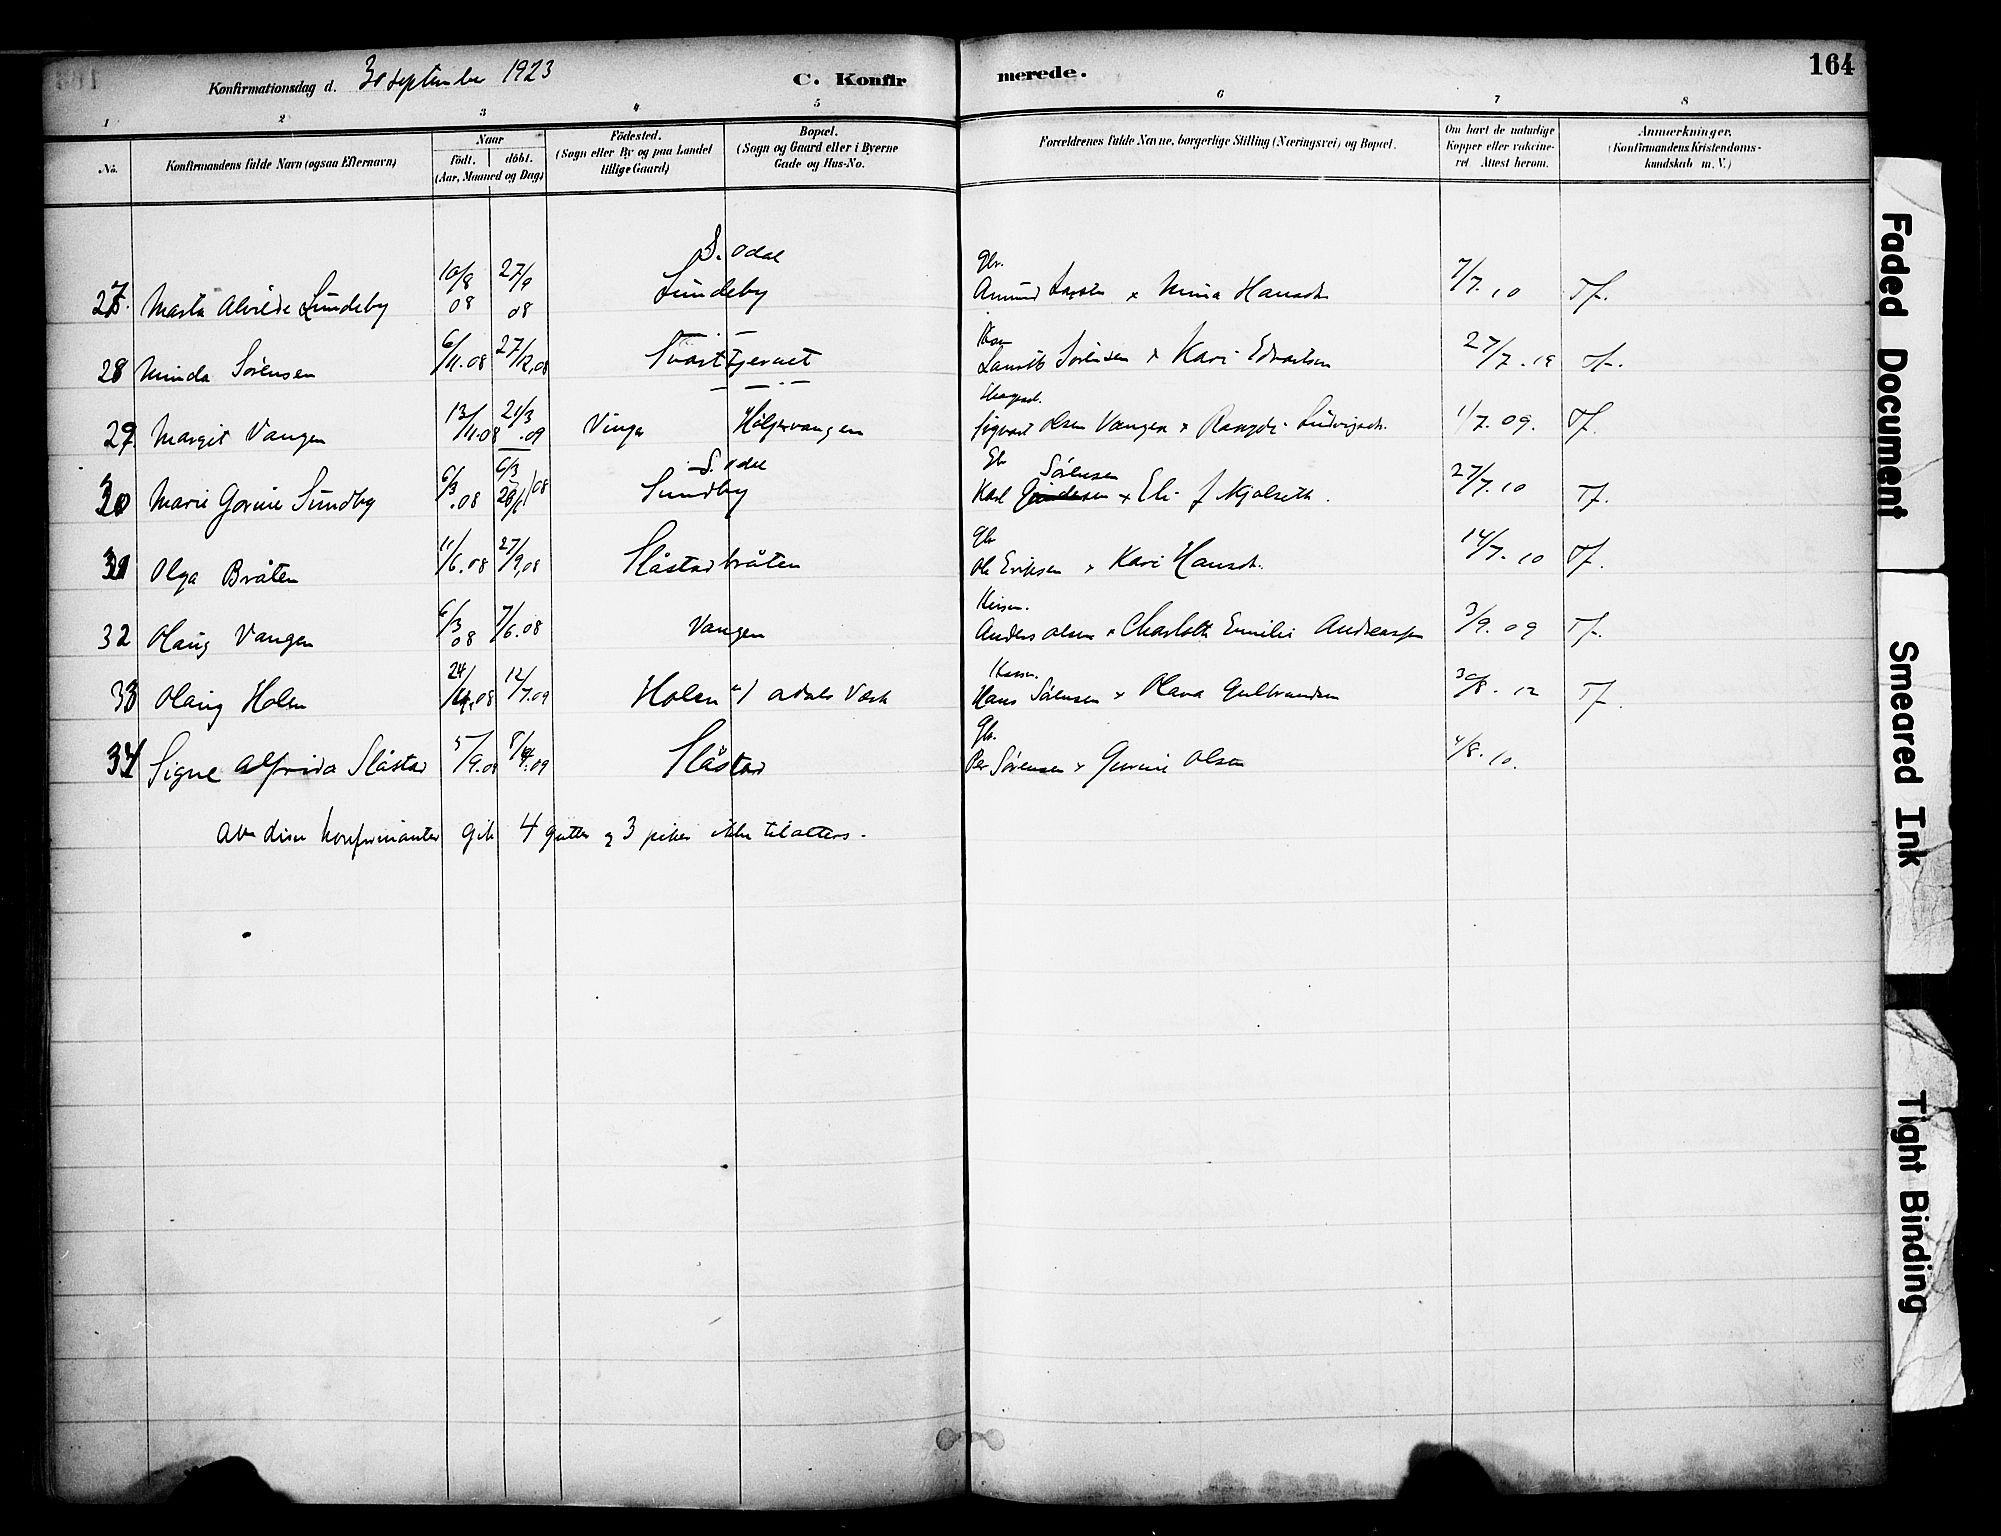 164
Konfirmationsdag d. 30 september 1923
C. Konfirmerede.
1 2 3 4 5 6 7 8
No.
Konfirmandens fulde Navn (ogsaa Efternavn)
Naar
födt. döbt.
(Aar, Maaned og Dag)
Födested.
(Sogn eller By og paa Landet
tillige Gaard)
Bopæl.
(Sogn og Gaard eller i Byerne
Gade og Hus-No.
Forældrenes fulde Navne, borgerlige Stilling (Næringsvei) og Bopæl.
Om havt de naturlige
Kopper eller vakcine-
ret Attest herom.
Anmærkninger.
(Konfirmandens Kristendoms-
kundskab m. V.)
S. Odal
Gbr.
27. Marta Alvilde Lundeby 10/8 08 27/9 08 Lundeby Amund Larsen x Mina Hansdt. 7/7. 10 Tf.
28 Minda Sørensen 6/11.08 27/12.08 Svarttjernet Laurits Sørensen x Kari Edvartsen 27/7. 19 Tf.
29. Margit Vangen 13/11.08 21/3.09 Vinger Holjervangen Sigvart Olsen Vangen x Ludvigsdt. 1/7. 09. Tf.
S. Odal
Gbr Sørensen
30 Marie Gorine Sundby 6/3.08 6/3 28/6 08 Sundby Karl x Eli f Mjølseth. 27/7.10 Tf.
Gbr
31 Olga Bråten 11/6.08 27/9.08 Slåstadbråten Ole Eriksen x Kari Hansdt. 14/7. 10 Tf.
32 Olaug Vangen 6/3 08 7/6.08 Vangen Anders Olsen x Charlotte Emilie Andreassen 3/9. 09 Tf.
33 Olaug Holen 24/ .08 12/7.09 Holen Odals Værk Hans Sørensen x Olava Gulbrandsen 30/8. 12 Tf.
Gbr.
34 Signe Alfrida Slåstad 5/9.08 8/4.09 Slåstad Per Sørensen x Gurine Olsen 4/8. 10.
Av disse konfirmanter gik 4 gutter og 3 piker ikke til alters.
Faded Document
Smeared Ink
Tight Binding